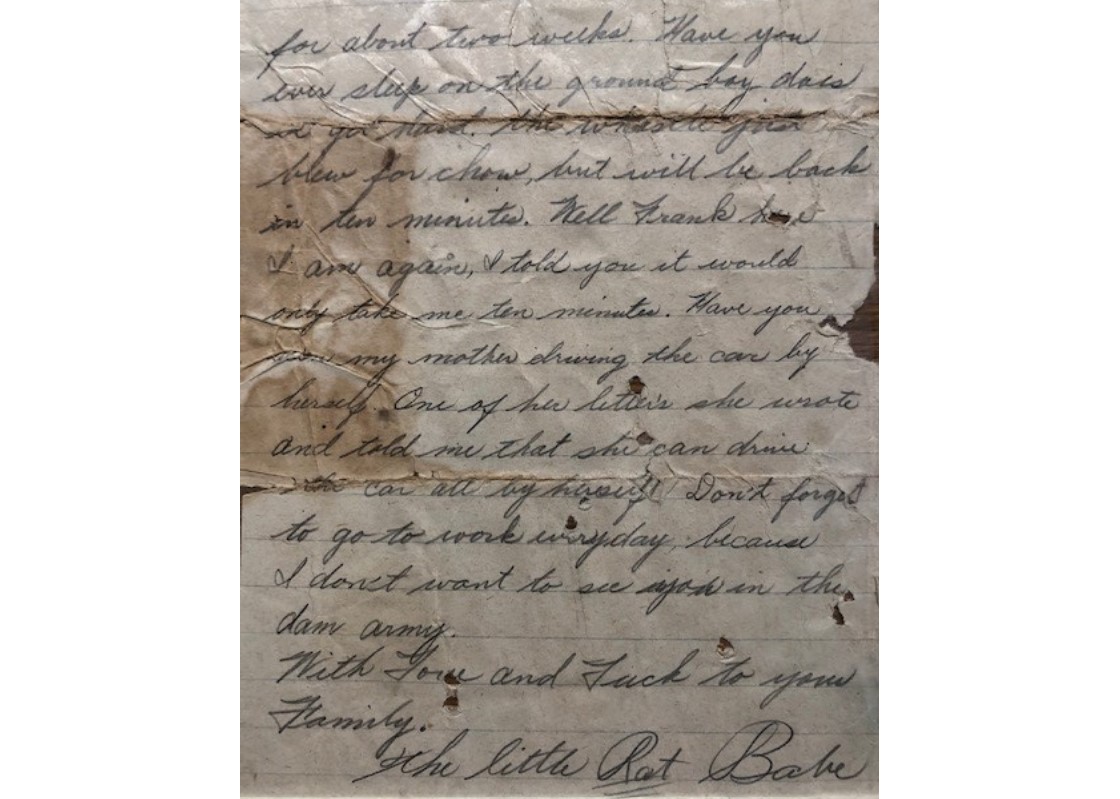 for about two weeks. Have you
ever sleep on the ground boy does
it get hard. The whistle just
blew for chow, but will be back
in ten minutes. Well Frank here
I am again, I told you it would
only take me ten minutes. Have you
seen my mother driving the car by
herself. One of her letters she wrote
and told me that she can drive
the car all by herself! Don't forget
to go to work everyday, because
I don't want to see you in the
dam army.
With Love and Luck to your
Family.
The little Rat Babe